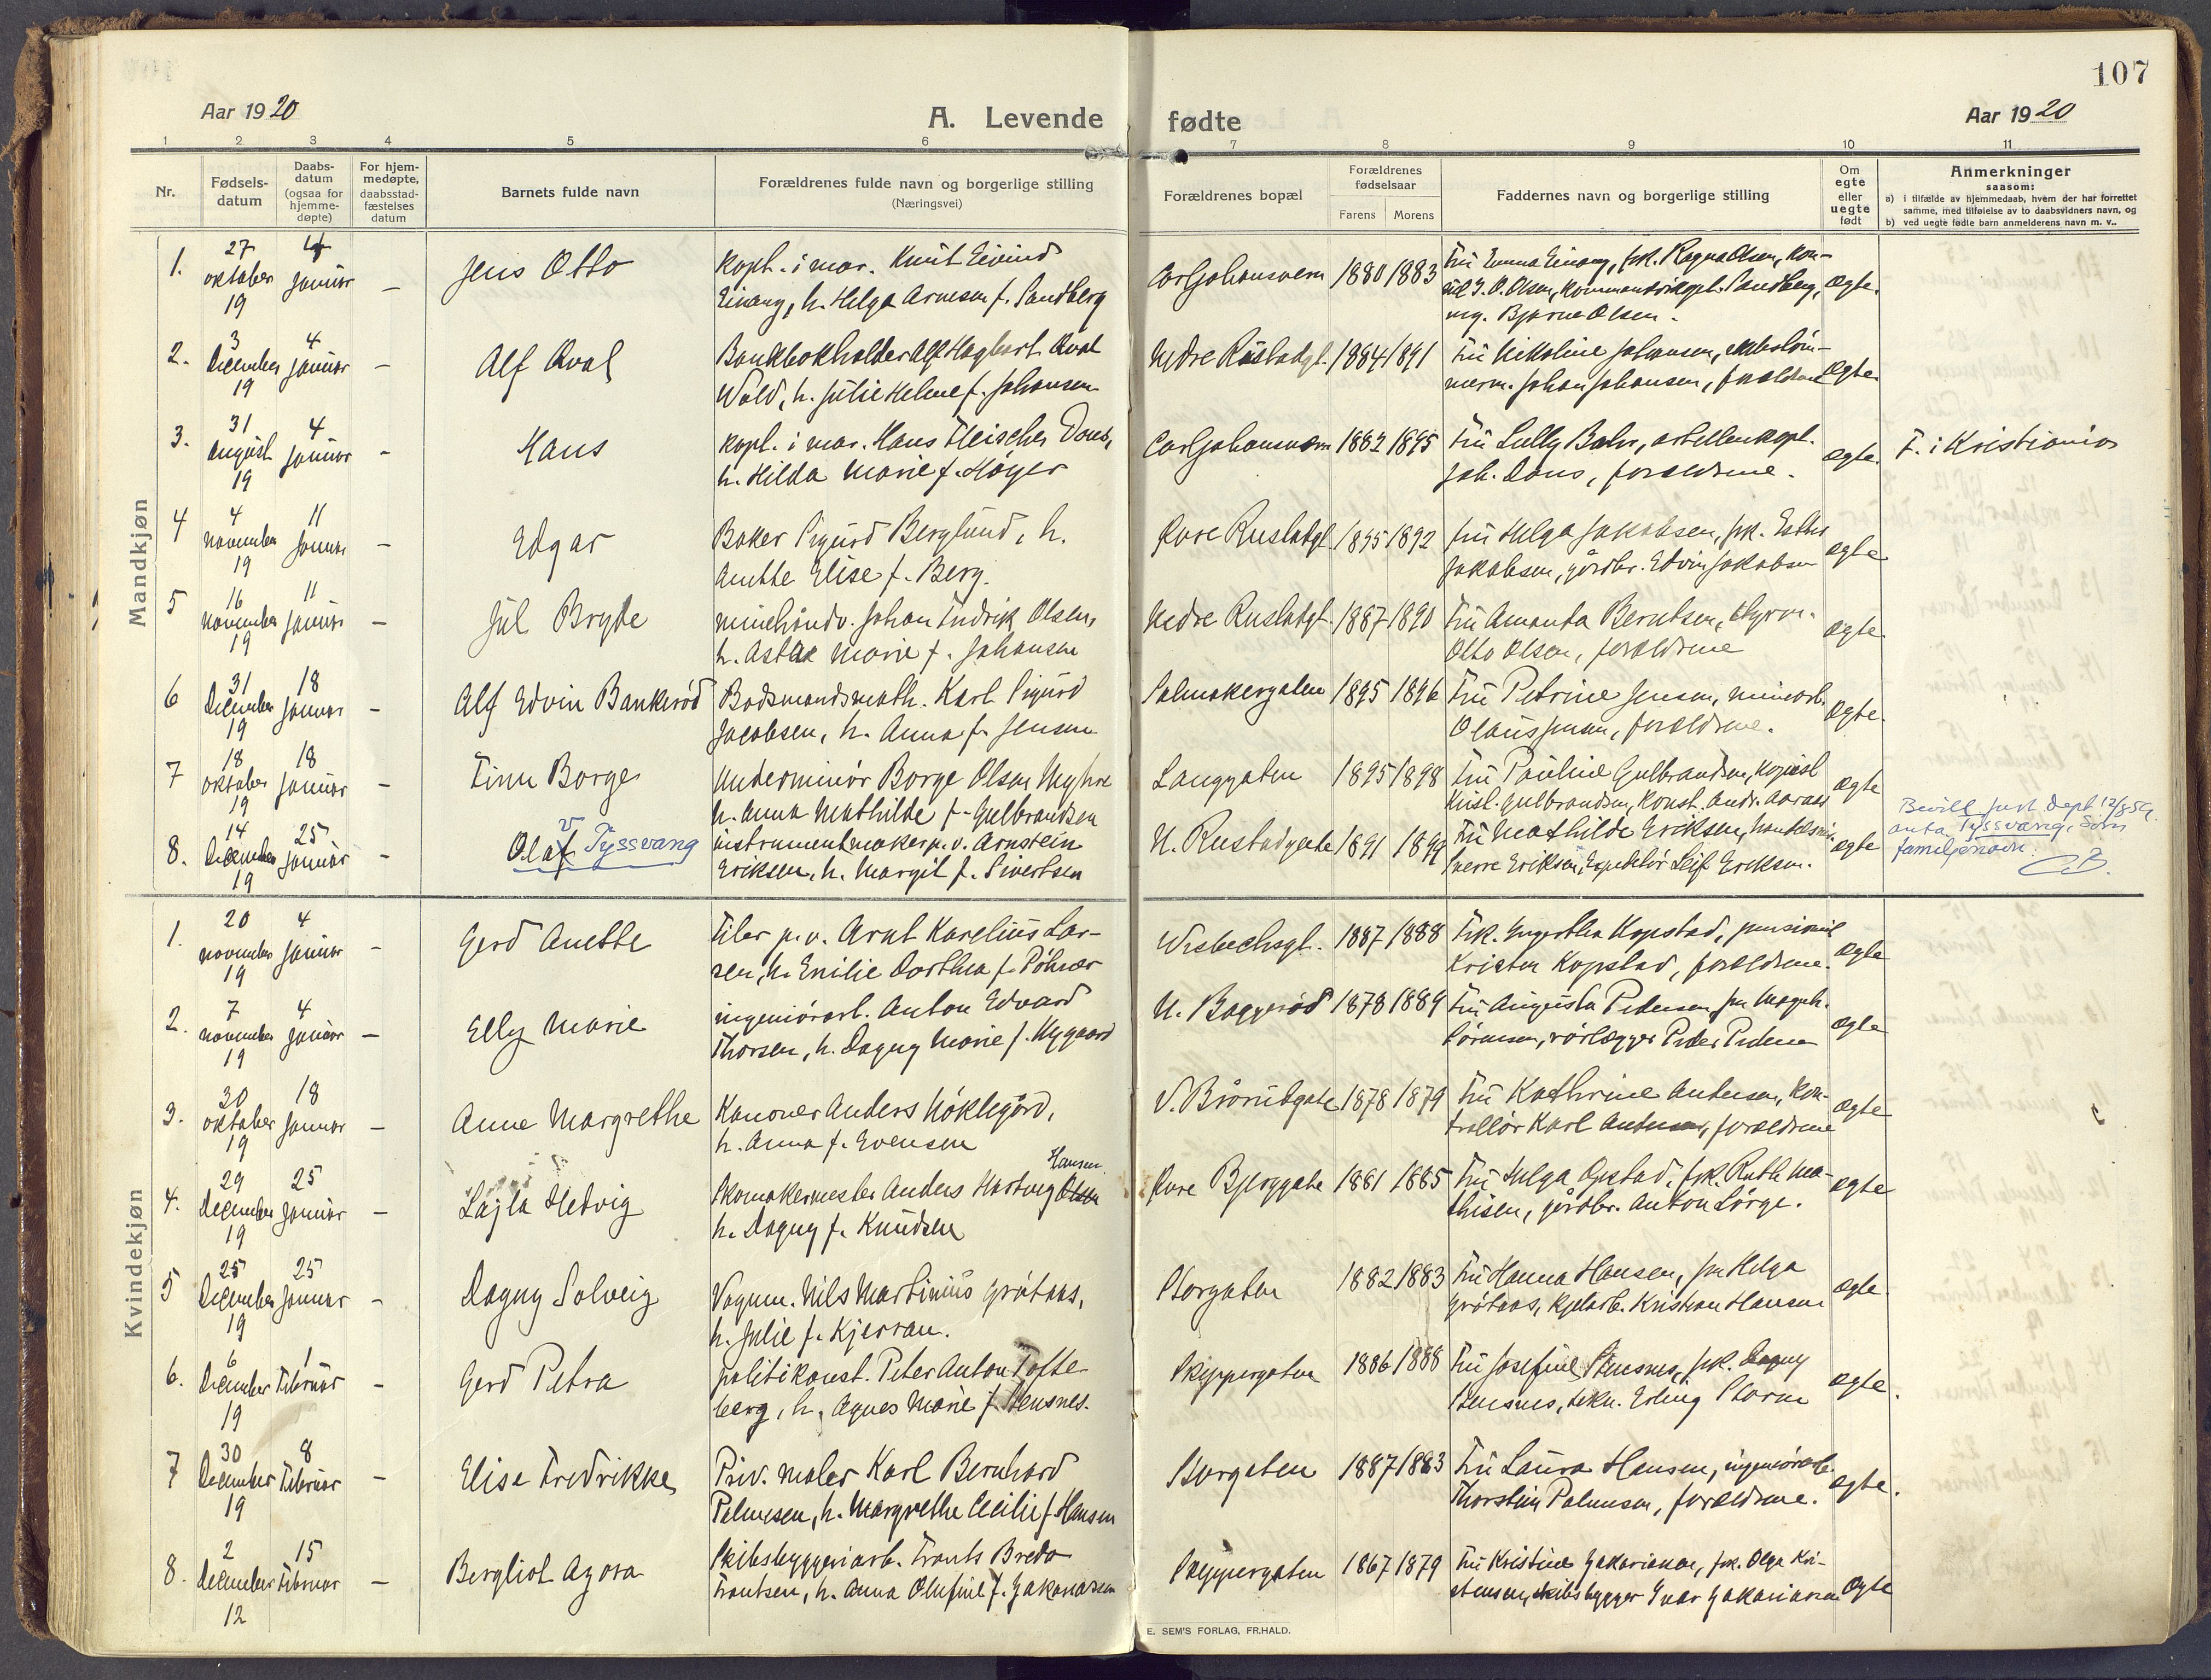 107
Aar 1920
A. Levende fødte
Aar 1920
1 2 3 4 5 6 7 8 9 10 11
Nr.
Fødsels-
datum
Daabs-
datum
(ogsaa for
hjemme-
døpte)
For hjem-
medøpte,
daabsstad-
fæstelses
datum
Barnets fulde navn
Forældrenes fulde navn og borgerlige stilling
(Næringsvei)
Forældrenes bopæl
Forældrenes
fødselsaar
Farens Morens
Faddernes navn og borgerlige stilling
Om
egte
eller
uegte
født
Anmerkninger
saasom:
a) i tilfælde av hjemmedaab, hvem der har forrettet
samme, med tilføielse av to daabsvidners navn, og
b) ved uegte fødte barn anmelderens navn m. v..
Mandkjøn
1. 27 oktober 19 4 januar – Jens Otto
kapt. i mar. Knut Eivind
Einang, h. Helga Arnesen f. Sandberg
Carljohansvern 1880 1883
Fru Emma Einang, frk. Ragna Olsen, kon-
sul J. O. Olsen, kommandørkapt. Sandberg,
ing. Bjarne Olsen.
ægte.
2. 3 December 19 4 januar – Alf Qval
Bankbokholder Alf Hagbart Qval
Wold, h. Julie Helene f. Johansen
Nedre Rustadgt. 1894 1891
Fru Nikoline Johansen,
Johan Johansen, forældrene
ægte.
3. 31 August 19 4 januar – Hans
kapt. i mar. Hans Fleischer Dons,
h. Hilda Marie f. Höyer
Carljohansvern 1882 1895
Fru Lully Bahr, artillerikapt.
Joh. Dons, forældrene.
ægte. F. i Kristiania
4 4 november 19 11 januar – Edgar
Baker Sigurd Berglund, h.
Anette Elise f. Berg.
Øvre Rustadgt 1895 1892
fru Helga Jakobsen, frk. Esther
Jakobsen, gårdbr. Edvin Jakobsen
ægte
5 16 november 19 11 januar – Jul Bryde
minehåndv. Johan Fredrik Olsen,
h. Asta Marie f. Johansen
Nedre Rustadgt. 1887 1890
Fru Amanda Berntsen, styrm.
Otto Olsen, forældrene
ægte.
6 31 December 19 18 januar – Alf Edvin Bankerød
Bådsmandsmath. Karl Sigurd
Jacobsen, h. Anna f. Jensen
Salmakergaten 1895 1896
Fru Petrine Jensen, minearb.
Olaus Jensen, forældrene.
ægte.
7 18 oktober 19 18 januar – Finn Borge
Underminör Borge Olsen Myhre
h. Anna Mathilde f. Gulbrandsen
Langgaten 1895 1898
Fru Pauline Gulbrandsen, kopist
Krist. Gulbrandsen, konst. Andr. Aaraas
ægte
8. 14 December 19 25 januar – Olaf v Tyssvang
instrumentmaker p. v. Arnstein
Eriksen, h. Margit f. Sivertsen
N. Rustadgate 1891 1899
Fru Mathilde Eriksen, handelsm.
Sverre Eriksen, Expeditör Leif Eriksen.
ægte
Bevill. Just. dept 12/8 59.
anta Tyssvang, som
familienavn.
CB.
Kvindekjøn
1. 20 november 19 4 januar – Gerd Anette
Filer p. v. Arnt Karelius Lar-
sen, h. Emilie Dorthea f. Pöhner
Wisbechsgt. 1887 1888
Frk. Ingertha Kopstad, pensionist
Krister Kopstad, forældrene.
ægte
2. 7 november 19 4 januar – Elly Marie
ingeniörarb. Anton Edvard
Thorsen, h. Dagny Marie f. Nygaard
N. Baggerød 1878 1889
Fru Augusta Pedersen, fru Magnh.
Sörensen, rörlægger Peder Pedersen
ægte
3. 30 oktober 19 18 januar – Anne Margrethe
Kanoner Anders Nöklegård,
h. Anna f. Evensen
V. Brårudgate 1878 1879
Fru Kathrine Andersen, kon-
trollör Karl Andersen, forældrene
ægte
4. 29 December 19 25 januar – Lajla Hedvig
Hansen
Skomakermester Anders Hartvig Olsen
h. Dagny f. Knudsen
Øvre Bjerggate 1881 1885
Fru Helga Opstad, frk. Ruth Ma-
thisen, gårdbr. Anton Lörge.
ægte
5 25 December 19 25 januar – Dagny Solveig
Vognm. Nils Martinius Grötaas,
h. Julie f. Kjerran.
Storgaten 1882 1883
Fru Hanna Hansen, fru Helga
Grötaas, kjelarb. Kristian Hansen
ægte
6. 6 December 19 1 Februar – Gerd Petra
politikonst. Peter Anton Tofte-
berg, h. Agnes Marie f. Stensnes.
Skippergaten 1886 1888
Fru Josefine Stensnes, frk. Dagny
Stensnes, tekn. Erling Storm
ægte.
7 30 December 19 8 Februar – Elise Fredrikke
Priv. maler Karl Bernhard
Palmesen, h. Margrethe Cecilie f. Hansen
Storgaten 1887 1883
Fru Laura Hansen, ingeniörarb.
Thorstein Palmesen, forældrene.
ægte.
8. 2 December 12 15 Februar – Bergliot Agora
Skibsbyggeriarb. Frants Bredo
Frantsen, h. Anna Olufine f. Zakariasen
Skippergaten 1867 1879
Fru Kristine Zakariasen, frk. Olga Kri-
stensen, skibsbygger Ivar Zakariasen
ægte
E. SEM'S FORLAG, FR.HALD.